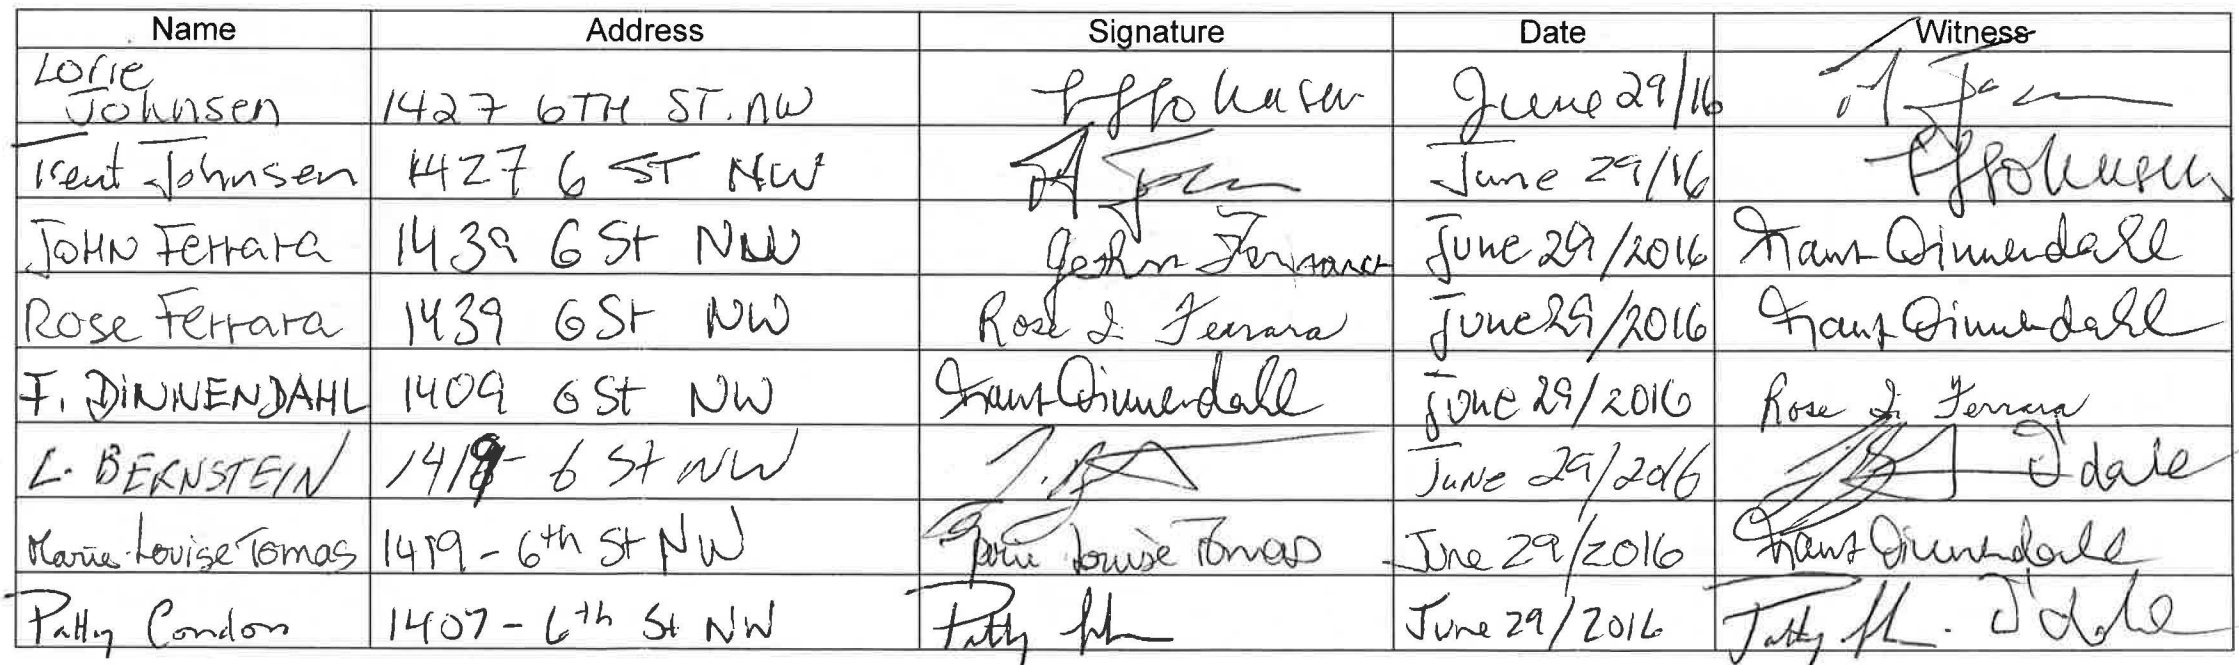 Name Address Signature Date Witness
Lorie
Johnsen 1427 6TH ST. NW Johnsen June 29/16
Trent Johnsen 1427 6 ST NW June 29/16 Johnsen
JOHN Ferrara 1439 6 St NW John Ferrara June 29/2016 Franz Dinnendahl
Rose Ferrara 1439 6 St NW Rose J. Ferrara June 29/2016 Franz Dinnendahl
F. DINNENDAHL 1409 6 St NW Franz Dinnendahl June 29/2016 Rose J. Ferrara
L. BERNSTEIN 6 St NW June 29/2016 D'dahl
Marie-Louise Tomas 1419 - 6th St NW Marie Louise Tomas June 29/2016 Franz Dinnendahl
Patty Condon 1407 - 6th St NW Patty June 29/2016 Patty D'dahl